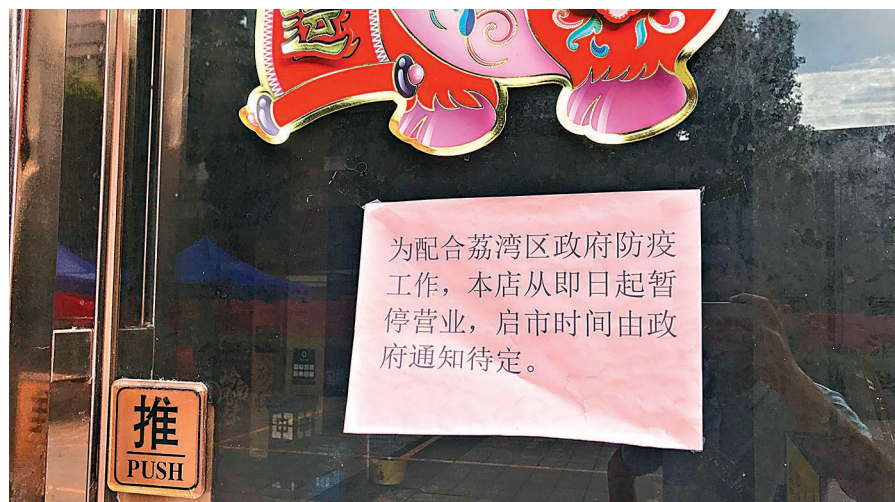 为配合荔湾区政府防疫
工作，本店从即日起暂
停营业，启市时间由政
府通知待定。
推
PUSH